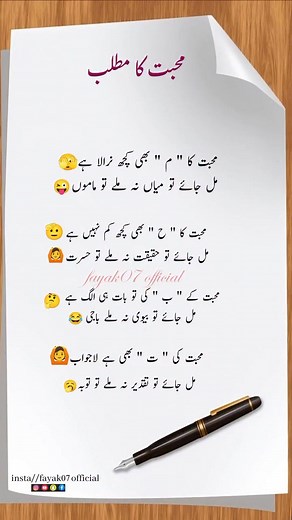 محبت کا مطلب
محبت کا " م " بھی کچھ نرالا ہے🫣
مل جائے تو میاں نہ ملے تو ماموں😜
محبت کا " ح " بھی کچھ کم نہیں ہے🫡
مل جائے تو حقیقت نہ ملے تو حسرت🙆
fayak07 official
محبت کے " ب " کی تو بات ہی الگ ہے🤔
مل جائے تو بیوی نہ ملے باجی😂
محبت کی " ت " بھی ہے لاجواب🙆
مل جائے تو تقدیر نہ ملے تو توبہ🥱
insta//fayak07official